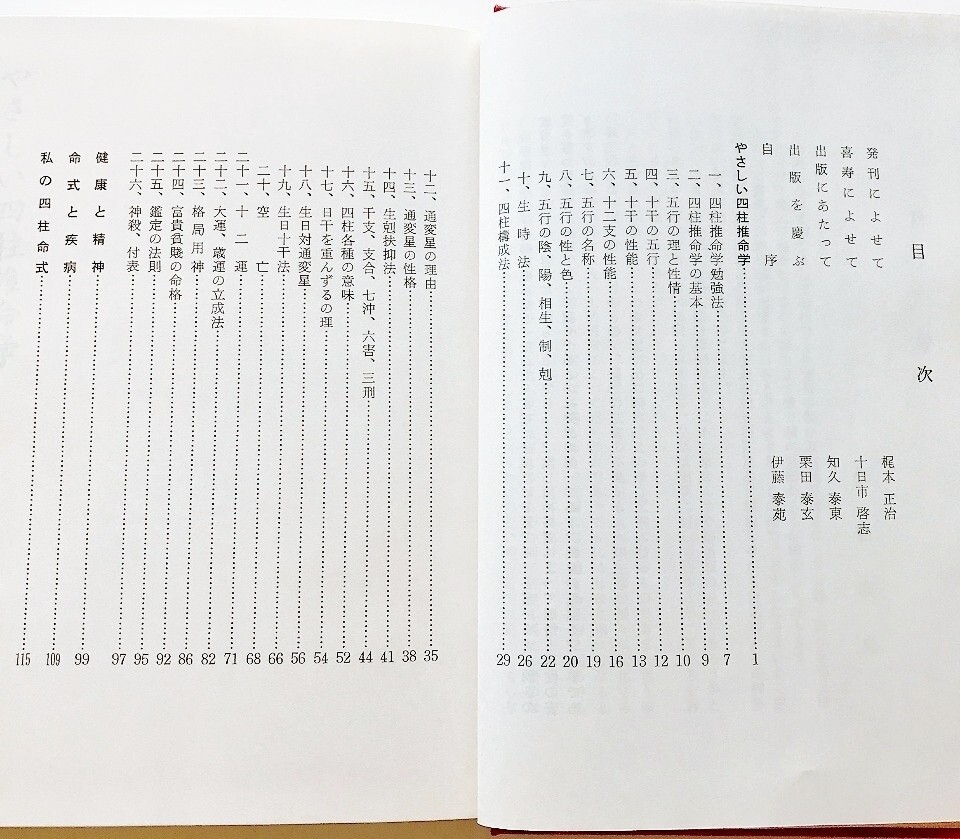 目次
発刊によせて 梶本 正治
喜寿によせて 十日市 啓志
出版にあたって 知久 泰東
出版を慶ぶ 栗田 泰玄
自序 伊藤 泰苑
やさしい四柱推命学 1
一、四柱推命学勉強法 7
二、四柱推命学の基本 9
三、五行の理と性情 10
四、十干の五行 12
五、十干の性能 13
六、十二支の性能 16
七、五行の名称 19
八、五行の性と色 20
九、五行の陰、陽、相生、制、剋 22
十、生時法 26
十一、四柱構成法 29
十二、通変星の理由 35
十三、通変星の性格 38
十四、生剋扶抑法 41
十五、干支、支合、七沖、六害、三刑 44
十六、四柱各種の意味 52
十七、日干を重んずるの理 54
十八、生日対通変星 56
十九、生日十干法 66
二十、空亡 68
二十一、十二運 71
二十二、大運、歳運の立成法 82
二十三、格局用神 86
二十四、富貴貧賤の命格 92
二十五、鑑定の法則 95
二十六、神殺、付表 97
健康と精神 99
命式と疾病 109
私の四柱命式 115